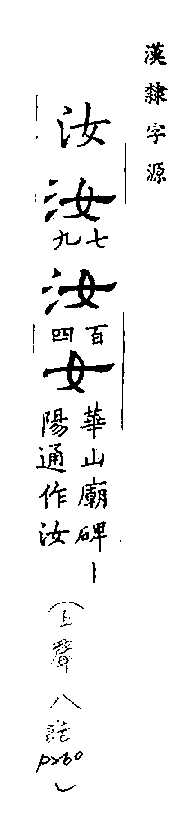 漢隸字源
汝
汝
七九
汝
百四
女
華山廟碑丨
陽通作汝
(上聲八語
p260)